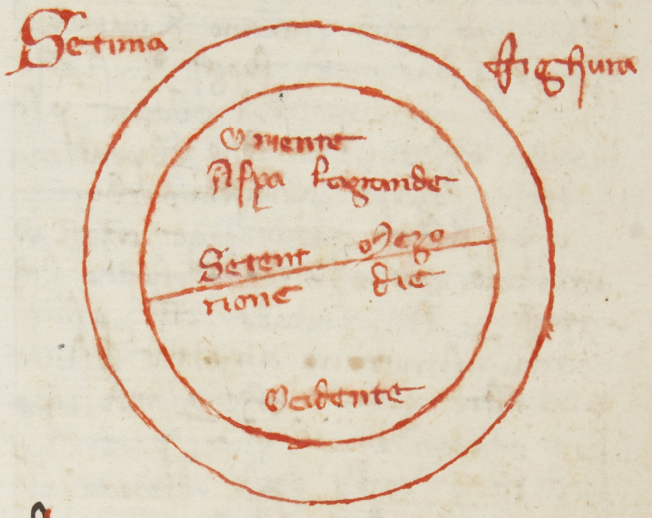 Setima
ffighura
Oriente
Aspa lagrande
Setent
mezo
rione
die
Ocidente